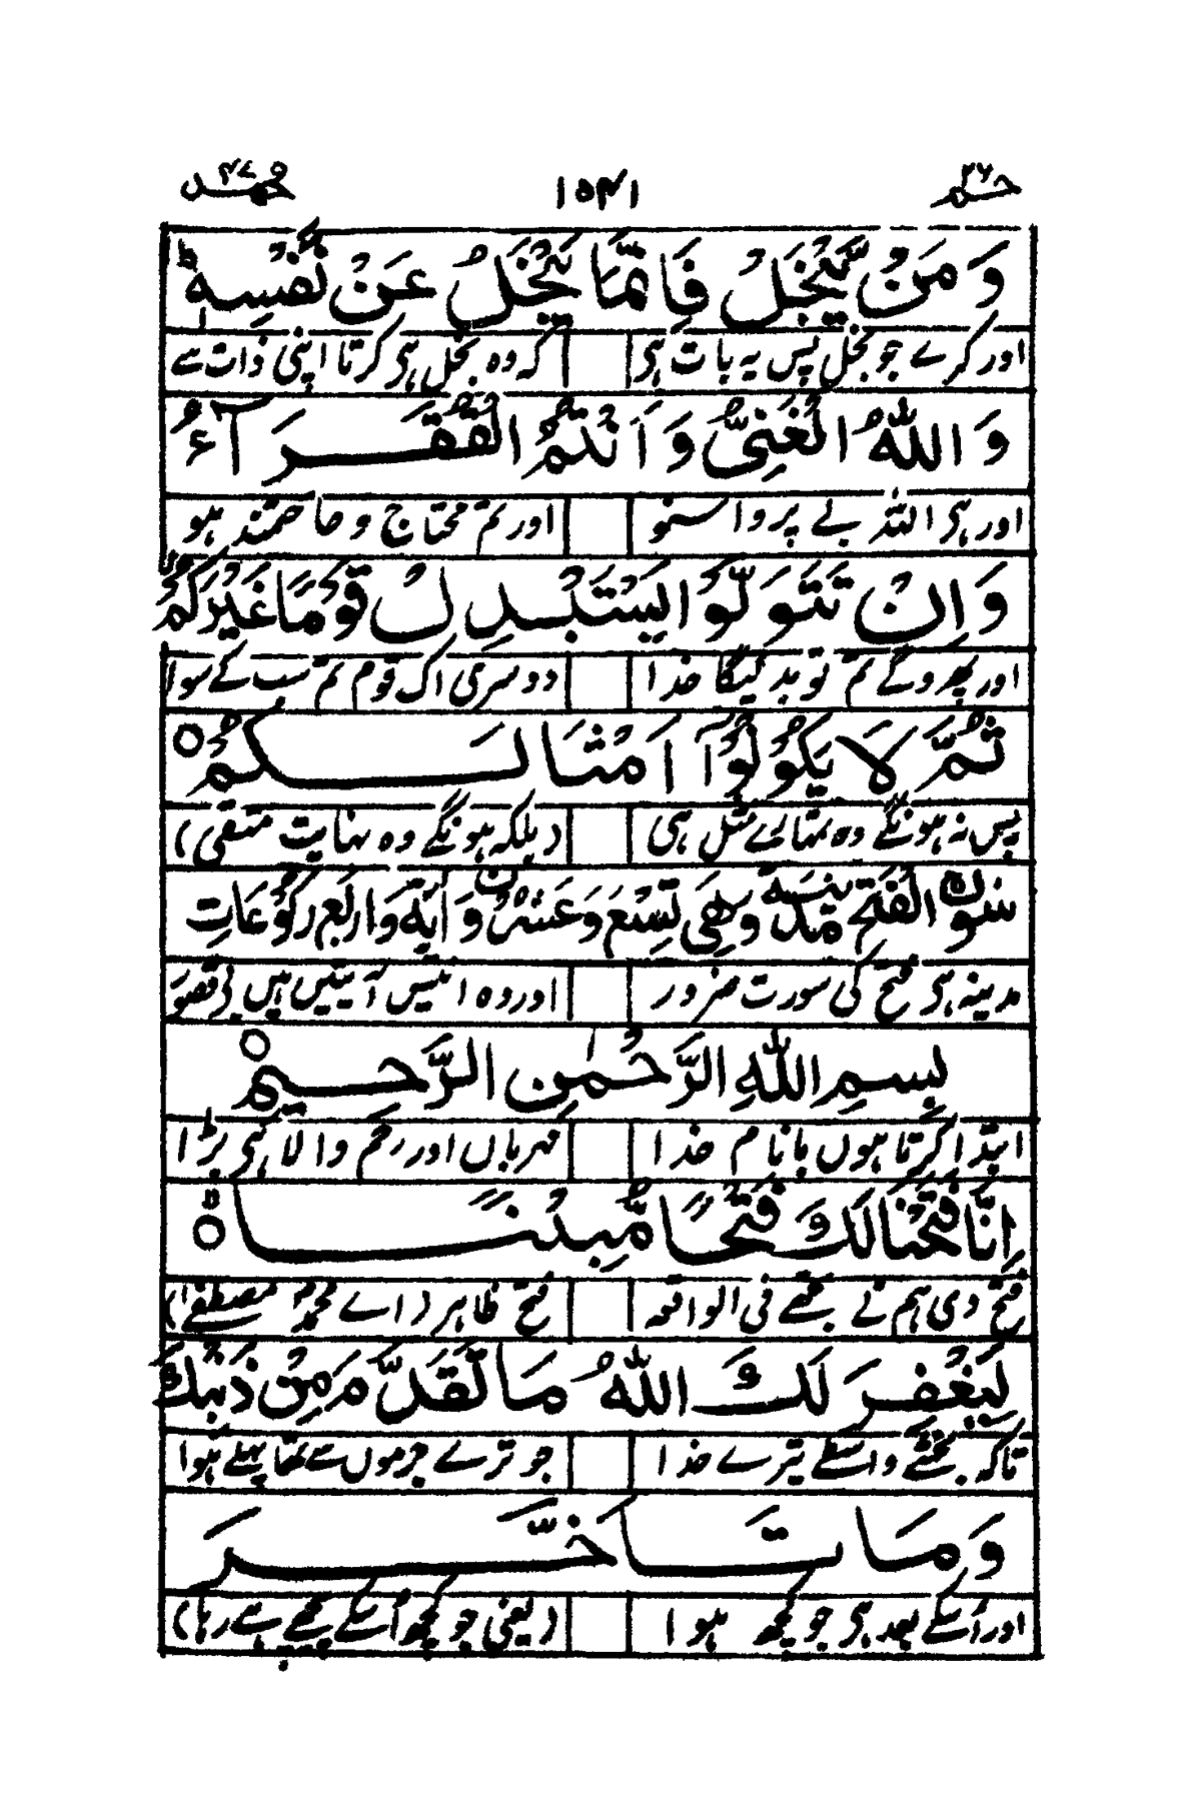 حٰمٓ ۲۶ ۱۵۴۱ محمد ۴۷
وَ مَنْ يَّبْخَلْ فَاِنَّمَا يَبْخَلُ عَنْ نَّفْسِهٖ ؕ
اور کرے جو بخل پس یہ بات ہی کہ وہ بخل ہی کرتا اپنی ذات سے
وَ اللّٰهُ الْغَنِيُّ وَ اَنْتُمُ الْفُقَرَآءُ
اور ہی اللہ بے پروا سنو اور تم محتاج و حاجتمند ہو
وَ اِنْ تَتَوَلَّوْا يَسْتَبْدِلْ قَوْمًا غَيْرَكُمْ
اور پھروگے تم تو بدلیگا خدا دوسری اک قوم تم سب کے سوا
ثُمَّ لَا يَكُوْنُوْۤا اَمْثَالَكُمْ ○
پس نہ ہونگے وہ تمہارے مثل ہی (بلکہ ہونگے وہ نہایت متقی)
سورۃ الفتح مدنیۃ وھی تسع و عشرون اٰیۃ و اربع رکوعات
مدینہ ہی فتح کی سورت ضرور اور وہ انتیس آیتیں ہیں بے قصور
بِسْمِ اللّٰهِ الرَّحْمٰنِ الرَّحِيْمِ ○
ابتدا کرتا ہوں بانام خدا مہرباں اور رحم والا ہی بڑا
اِنَّا فَتَحْنَا لَكَ فَتْحًا مُّبِيْنًا ○
فتح دی ہم نے تجھے فی الواقعہ فتح ظاہر (اے محمد مصطفےٰ)
لِّيَغْفِرَ لَكَ اللّٰهُ مَا تَقَدَّمَ مِنْ ذَنْبِكَ
تاکہ بخشے واسطے تیرے خدا جو ترے جرموں سے تھا پہلے ہوا
وَ مَا تَاَخَّرَ
اور اُسکے بعد ہی جو کچھ ہوا (یعنی جو کچھ اُسکے پیچھے ہے رہا)